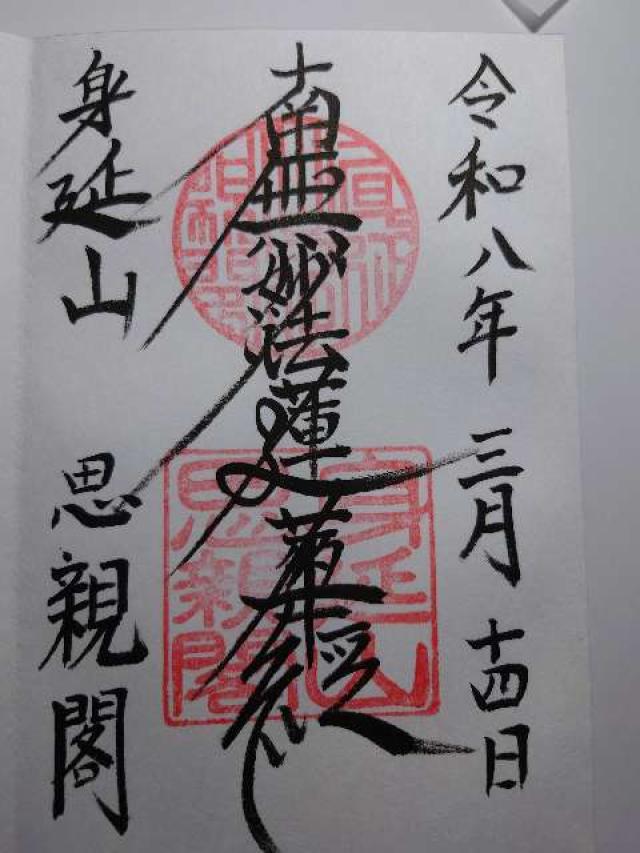 令和八年 三月 十四日
南無妙法蓮華経
身延山 思親閣
身延山
思親閣